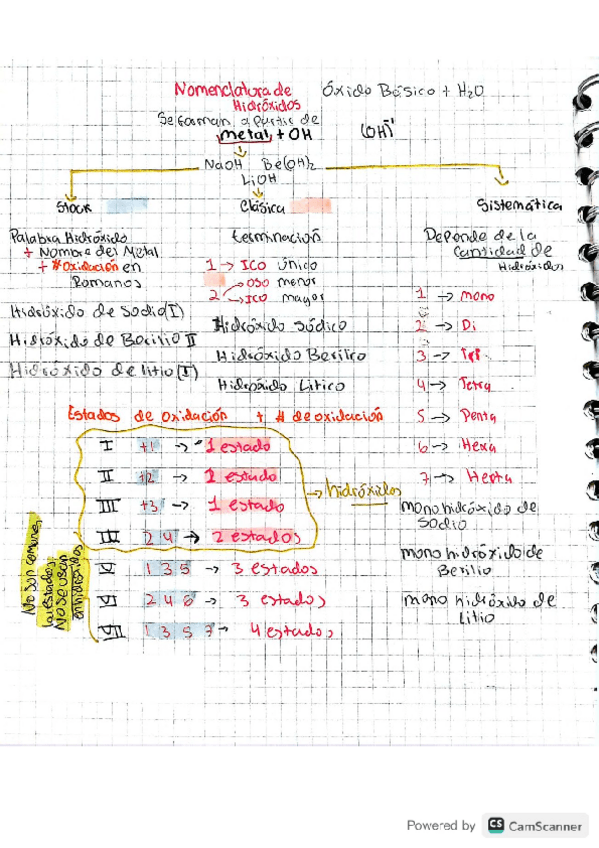 Nomenclatura de Óxido Básico + H2O
Hidróxidos
Se forman a partir de
metal + OH (OH)⁻¹
NaOH Be(OH)2
LiOH
Stock
Palabra Hidróxido
+ Nombre del Metal
+ # Oxidación en
Romanos
Hidróxido de Sodio (I)
Hidróxido de Berilio II
Hidróxido de litio (I)
Clásica
terminación
1 → ICO único
2 → oso menor
→ ICO mayor
Hidróxido Sódico
Hidróxido Berilico
Hidróxido Litico
Sistemática
Depende de la
Cantidad de
Hidróxidos
1 → mono
2 → Di
3 → Tri
4 → Tetra
5 → Penta
6 → Hexa
7 → Hepta
monohidróxido de
Sodio
mono hidróxido de
Berilio
mono hidróxido de
Litio
Estados de Oxidación + # de oxidación
I +1 → 1 estado
II +2 → 1 estado
III +3 → 1 estado
IIII 2 4 → 2 estados
→ hidróxidos
V 1 3 5 → 3 estados
VI 2 4 6 → 3 estados
VII 1 3 5 7 → 4 estados
No son comunes
estados
No se usan
en hidróxidos
Powered by CS CamScanner